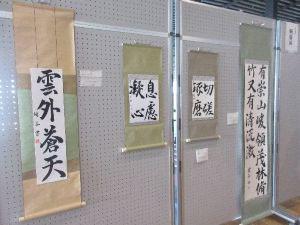 雲外蒼天
息慮
澂心
切磋
琢磨
有崇山峻領茂林脩
竹又有清流激